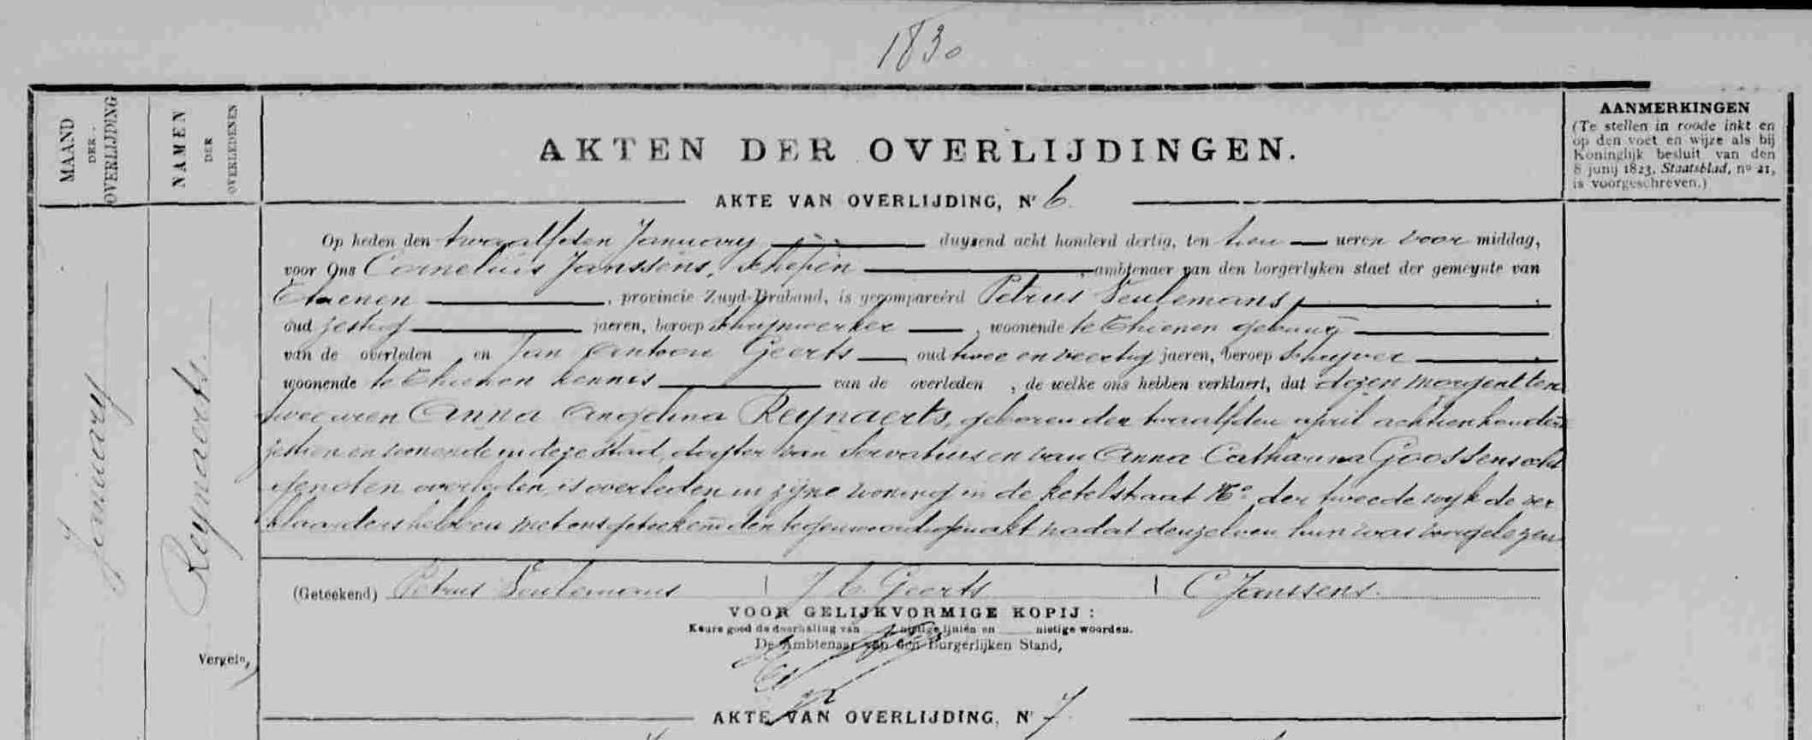 1830
MAAND DER OVERLIJDING
NAMEN DER OVERLEDENEN
AKTEN DER OVERLIJDINGEN.
AANMERKINGEN
(Te stellen in roode inkt en
op den voet en wijze als bij
Koninglijk besluit van den
8 junij 1823, Staatsblad, no 21,
is voorgeschreven.)
AKTE VAN OVERLIJDING, Nr 6
Op heden den twaalfden January duyzend acht honderd dertig, ten tien ueren voor middag,
voor Ons Cornelius Janssens, schepen, ambtenaer van den borgerlyken staet der gemeynte van
Thienen, provincie Zuyd-Braband, is gecompareerd Petrus Ceulemans,
oud zestig jaeren, beroep schrijnwerker, woonende te Thienen gebuur
van de overleden en Jan Antoon Geerts, oud twee en veertig jaeren, beroep schryver
woonende te Thienen kennis van de overleden, de welke ons hebben verklaert, dat dezen morgend ten
twee uren Anna Angelina Reynaerts, geboren den twaalfden april achtienhonderd
zestien en wonende in deze stad, dogter van Servatius en van Anna Catharina Goossens
overleden, is overleden in zijne woning in de ketelstraat der tweede wyk de ver
klaarders hebben met ons geteekend den tegenwoordigen akt nadat denzelven hun was voorgelezen
January
Reynaerts.
(Geteekend) Petrus Ceulemans J A Geerts C Janssens.
VOOR GELIJKVORMIGE KOPIJ :
Keure goed de doorhaling van nietige liniën en nietige woorden.
De Ambtenaar van den Burgerlijken Stand,
Vergel.,
AKTE VAN OVERLIJDING, Nr 7